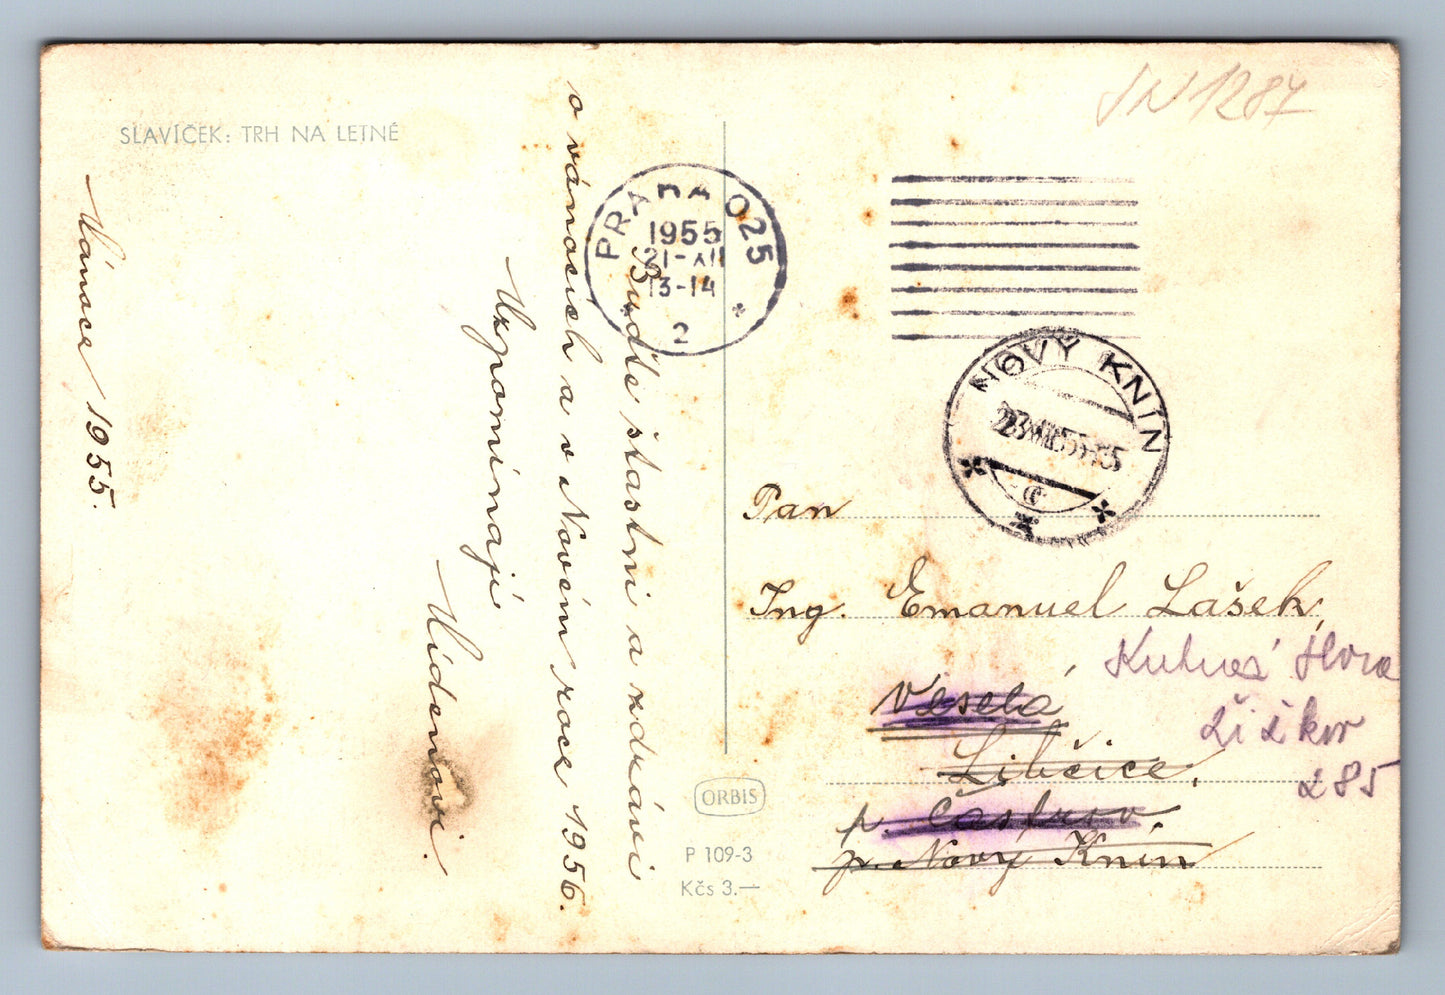 SLAVÍČEK: TRH NA LETNÉ
Vánoce 1955.
Buďte šťastni a zdrávi
o vánocích a v Novém roce 1956.
Vzpomínají
Vídenovi.
PRAHA 025
1955
21-XII
13-14
2
JN 1287
NOVÝ KNÍN
23.XII.55
Pan
Ing. Emanuel Lašek,
Kutná Hora
Žižkov
285
Veselá
Libčice,
p. Častrov
p. Nový Knín
ORBIS
P 109-3
Kčs 3.—